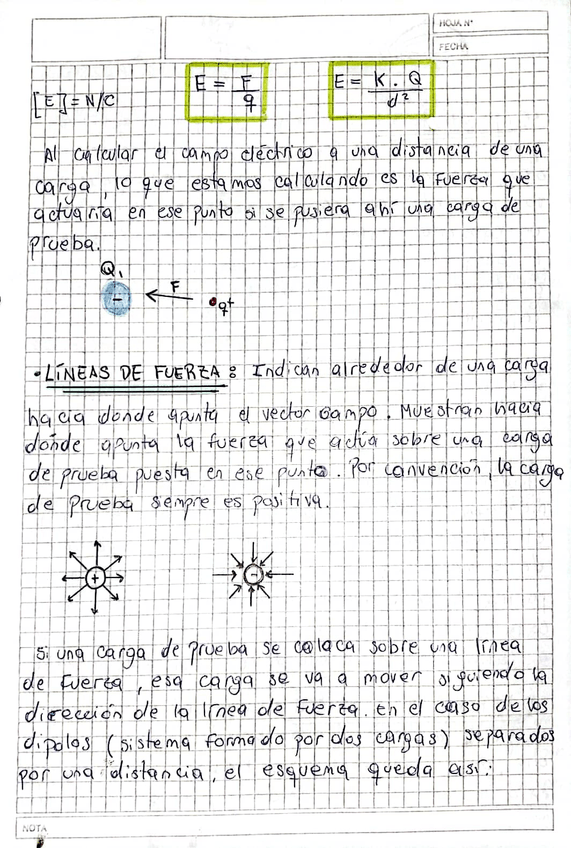 HOJA N°
FECHA
[E] = N/C
E = F/q
E = K . Q/d²
Al calcular el campo eléctrico a una distancia de una
carga, lo que estamos calculando es la fuerza que
actuaría en ese punto si se pusiera ahí una carga de
prueba.
Q₁
- F q+
• LÍNEAS DE FUERZA : Indican alrededor de una carga
hacia donde apunta el vector campo. Muestran hacia
donde apunta la fuerza que actúa sobre una carga
de prueba puesta en ese punto. Por convención, la carga
de prueba siempre es positiva.
+ -
Si una carga de prueba se coloca sobre una línea
de fuerza, esa carga se va a mover siguiendo la
dirección de la línea de fuerza. en el caso de los
dipolos (sistema formado por dos cargas) separados
por una distancia, el esquema queda así:
NOTA